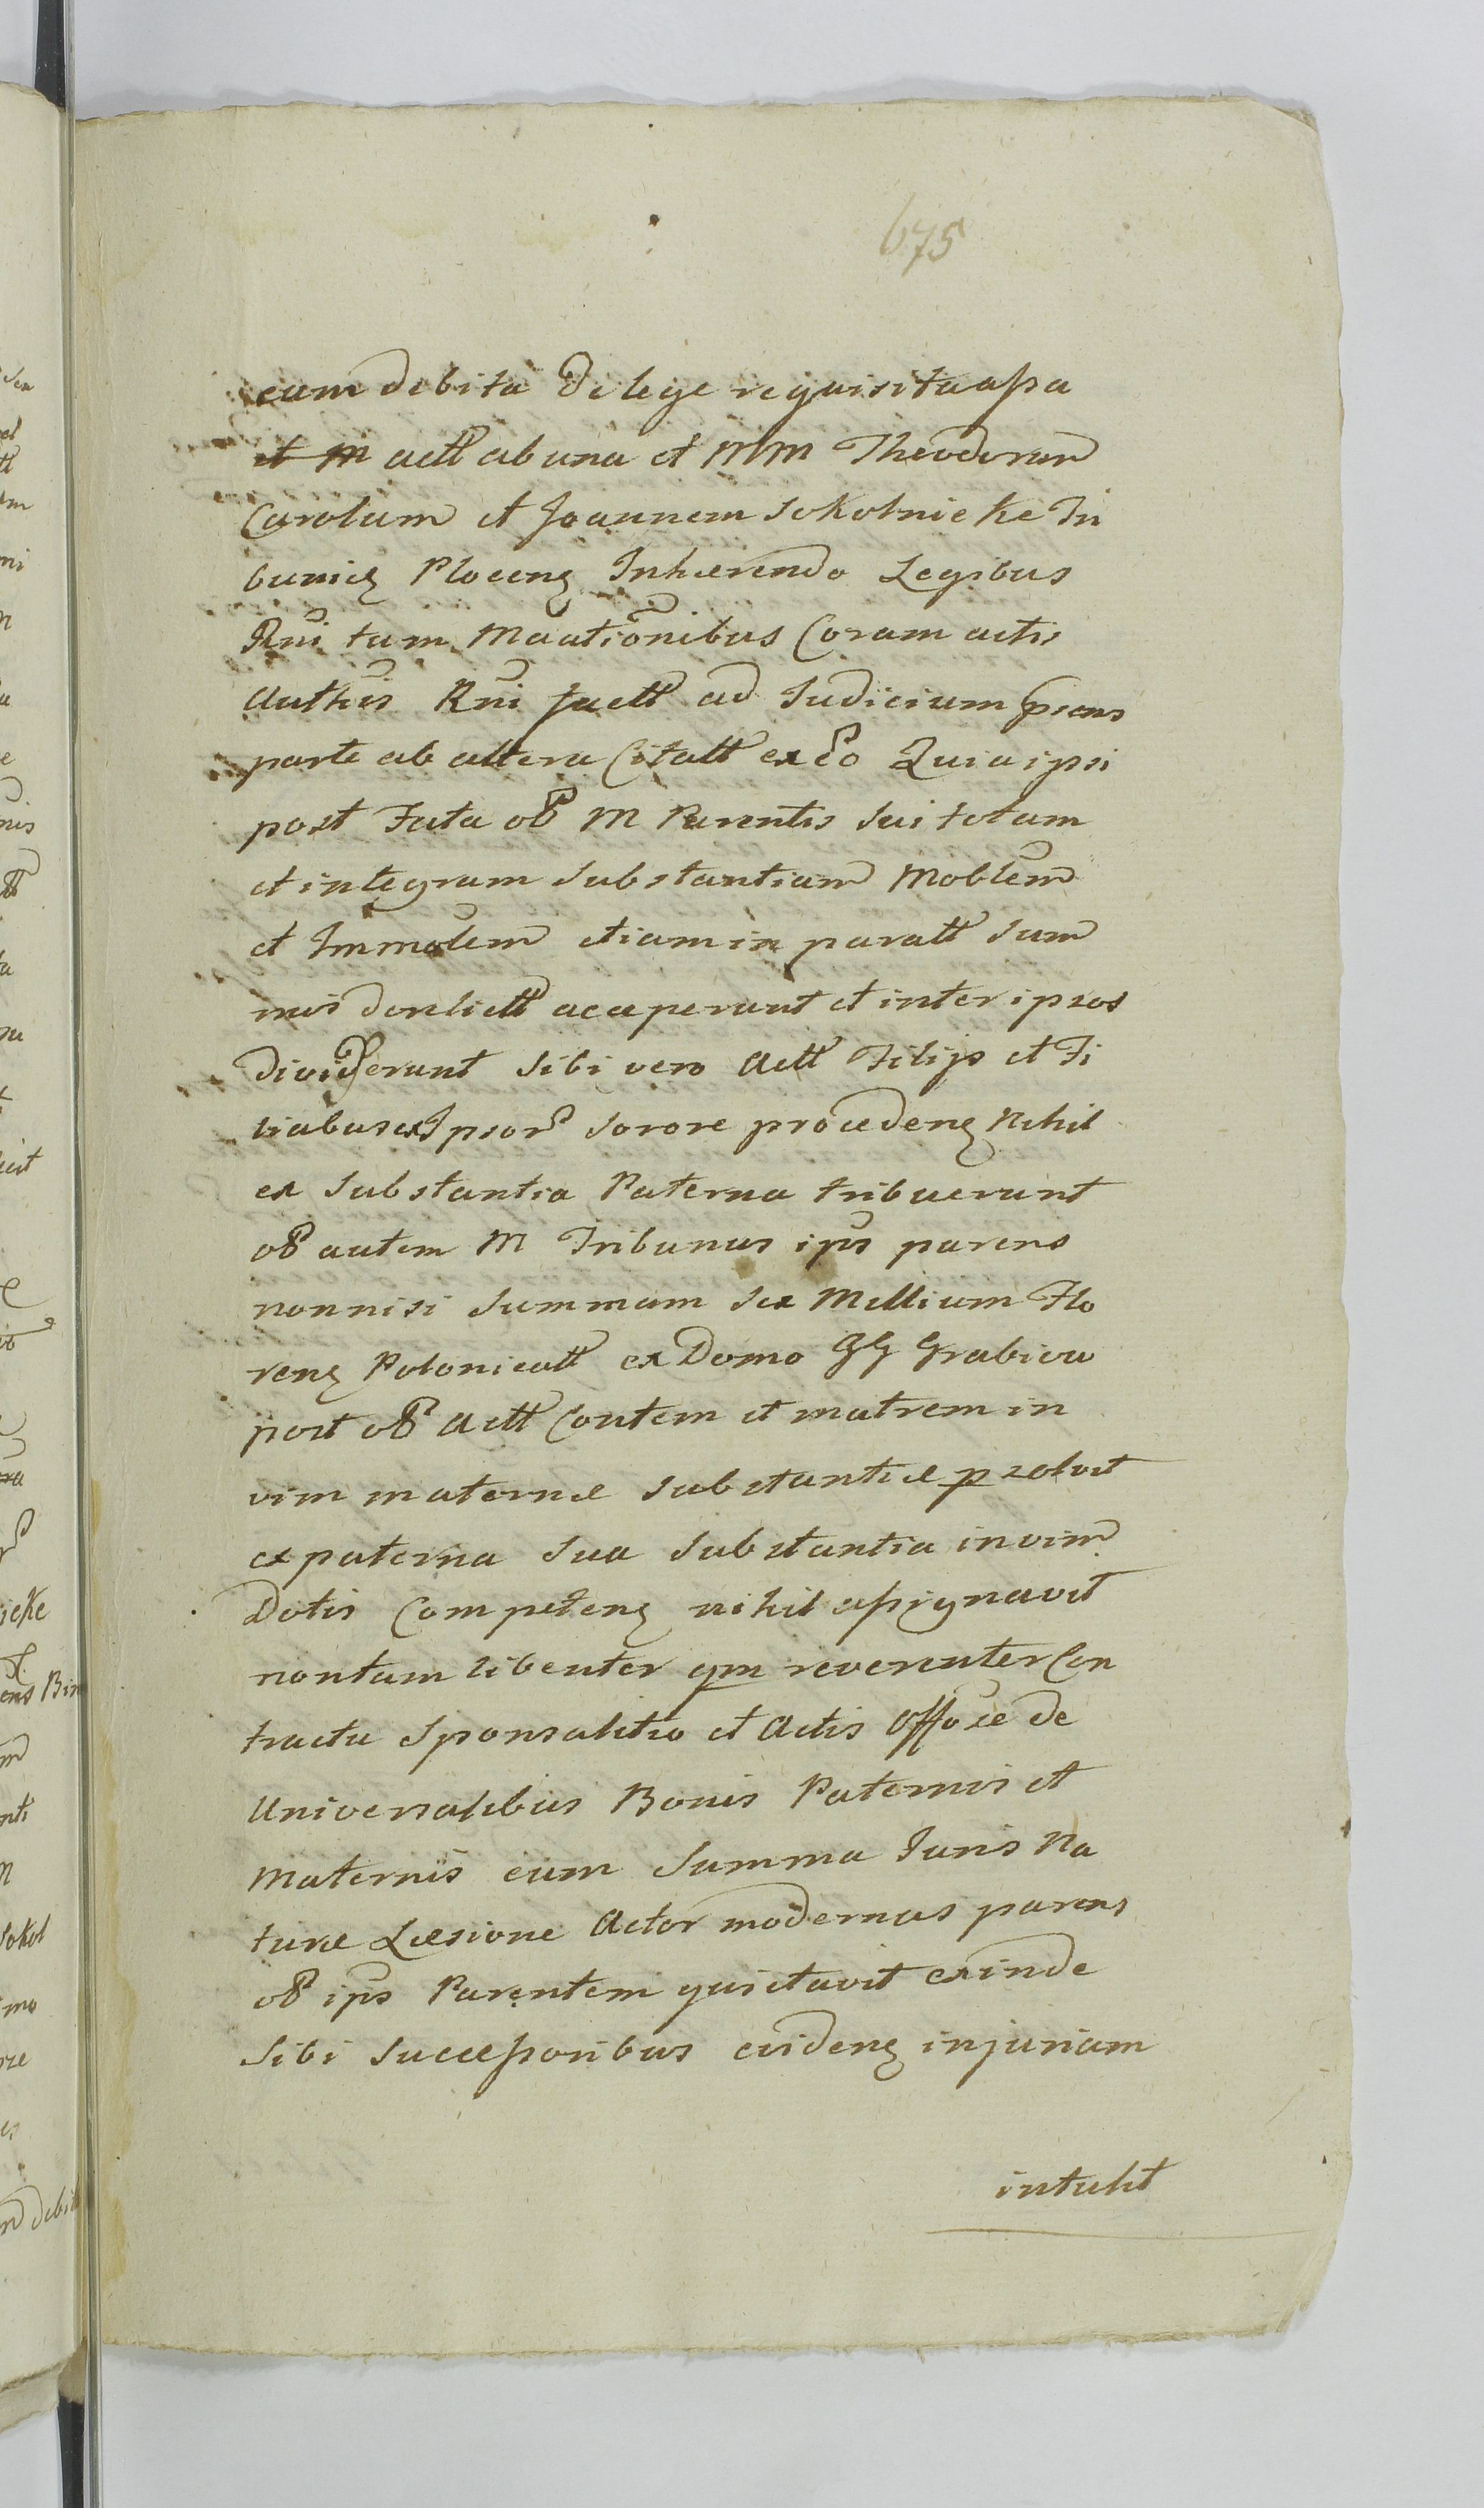 675
cum debita de lege requisita assa
et M actt ab una et MM Theodorum
Carolum et Joannem Sokolnickie Tri
bunicz Plocenz Inhærendo Legibus
Rni tum Maationibus Coram actis
Authcis Rni factt ad Judicium
parte ab altera Citatt ex eo Quia ipsi
post Fata ob M Parentis sui totam
et integram substantiam Moblem
et Immoblem etiam in paratt sum
mis derelictt acceperunt et inter ipsos
diviserunt sibi vero Actt Filijs et Fi
liabus ex Ipsor sorore procedenz Nihil
ex substantia Paterna tribuerunt
ob autem M Tribunus ips parens
nonnisi summam sex Millium Flo
renz Polonicatt ex Domo GG Grabiow
post ob Actt Contem et matrem in
vim maternæ substantiæ pzolvit
ex paterna sua substantia in vim
Dotis Competenz nihil assignavit
non tam libenter qm reverenter Con
tractu Sponsalitio et Actis Offose de
Universalibus Bonis Paternis et
Maternis cum summa Juris Na
turæ Læsione Actor modernus parens
ob ips Parentem quietavit exinde
sibi successoribus evidenz injuriam
intulit